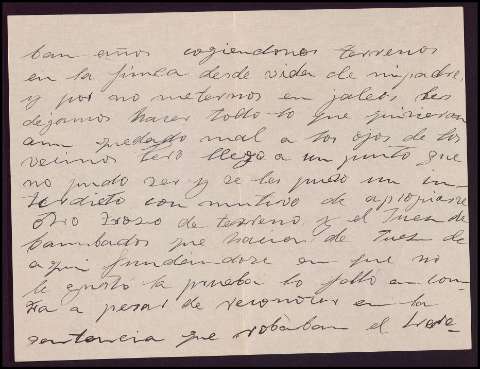 ban años cogiendonos terrenos
en la finca desde vida de mi padre,
y por no meternos en jaleos, les
dejamos hacer todo lo que quisieran
aun quedado mal a los ojos de los
vecinos pero llego a un punto que
no pudo ser y se les puso un in-
terdicto con mutivo de apropiarse
otro trozo de terreno y el Juez de
que hacia de Juez de
aqui fundandose en que no
le gusto la prueba lo fallo en con-
tra a pesar de reconocer en la
sentencia que robaban el terre-